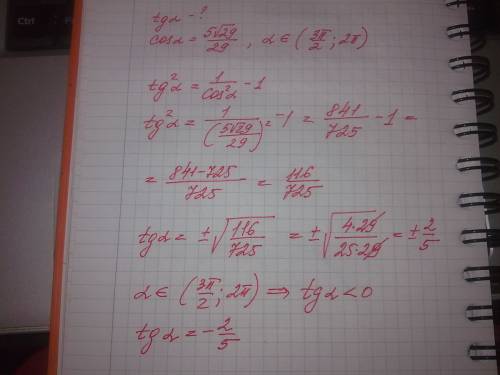 Ctrl
tgα - ?
cosα = 5√29/29, α ∈ (3π/2; 2π)
tg²α = 1/cos²α - 1
tg²α = 1/(5√29/29)² - 1 = 841/725 - 1 =
= 841-725/725 = 116/725
tgα = ±√116/725 = ±√4·29/25·29 = ±2/5
α ∈ (3π/2; 2π) ⇒ tgα < 0
tgα = -2/5